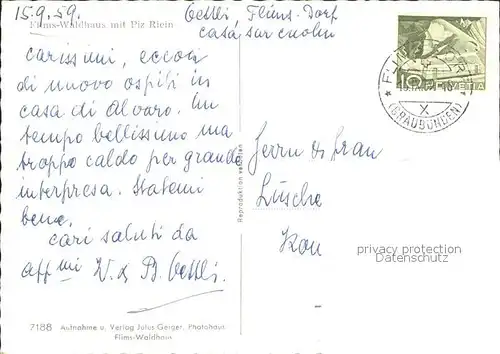 15.9.59. Oettli, Flims-Dorf
Films-Waldhaus mit Piz Riein
casa sur cuolm
carissimi, eccoci
di nuovo ospiti in
casa di Alvaro. Un
tempo bellissimo ma
troppo caldo per grande
interpresa. Statemi
bene.
cari saluti da
aff mi W. & B. Oettli.
HELVETIA
10
FLIMS
X
(GRAUBÜNDEN)
Herrn & Frau
privacy protection
Datenschutz
Reproduktion verboten
7188 Aufnahme u. Verlag Jules Gerger, Photohaus
Flims-Waldhaus